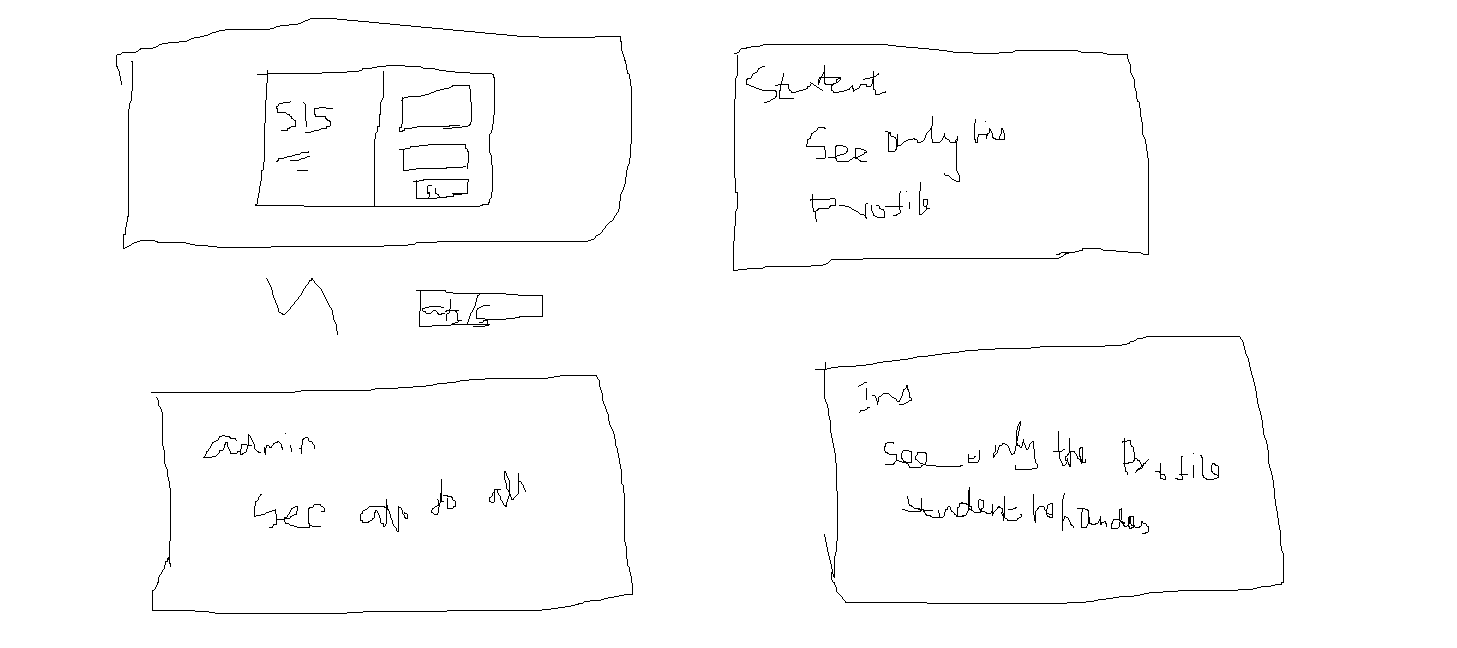 SIS
Student
See only his
Profile
admin
See do all
Ins
See only the Profile
student he handas